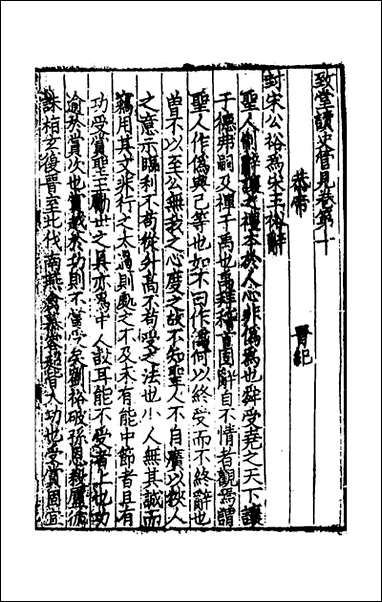 致堂讀史管見卷第十
恭帝　晉紀
封宋公裕爲宋王裕辭
聖人制辭讓之禮本於人心非僞爲也舜受堯之天下讓
于德弗嗣及禪于禹也禹拜稽首固辭自不情者觀焉謂
聖人作僞與己等也如不曰作僞何以終受而不終辭也
曽不以至公無我之心度之故不知聖人不自廣以狹人
之意示臨利不苟從升高不苟受之法也小人無其誠而
竊用其文來行之太過則處之不及未有能中節者且有
功受賞聖王勸世之具亦爲中人設耳能不受者上也功
逾於賞次也賞最於功則不當受矣劉裕破孫恩殺盧循
誅桓玄復晉至北伐南燕禽慕容超皆大功也受賞固宜